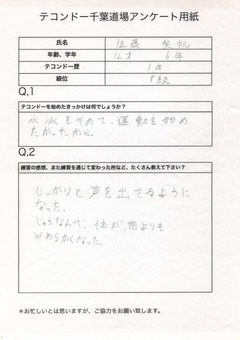 テコンドー千葉道場アンケート用紙
氏名
佐藤 梨帆
年齢、学年
12才 6年
テコンドー歴
1年
級位
8級
Q,1
テコンドーを始めたきっかけは何でしょうか?
水泳をやめて、運動を始め
たかったから。
Q,2
練習の感想、また練習を通じて変わった所など、たくさん教えて下さい?
しっかりと声を出せるように
なった。
じゅうなんで、体が、前よりも
やわらかくなった。
*お忙しいとは思いますが、ご協力をお願い致します。